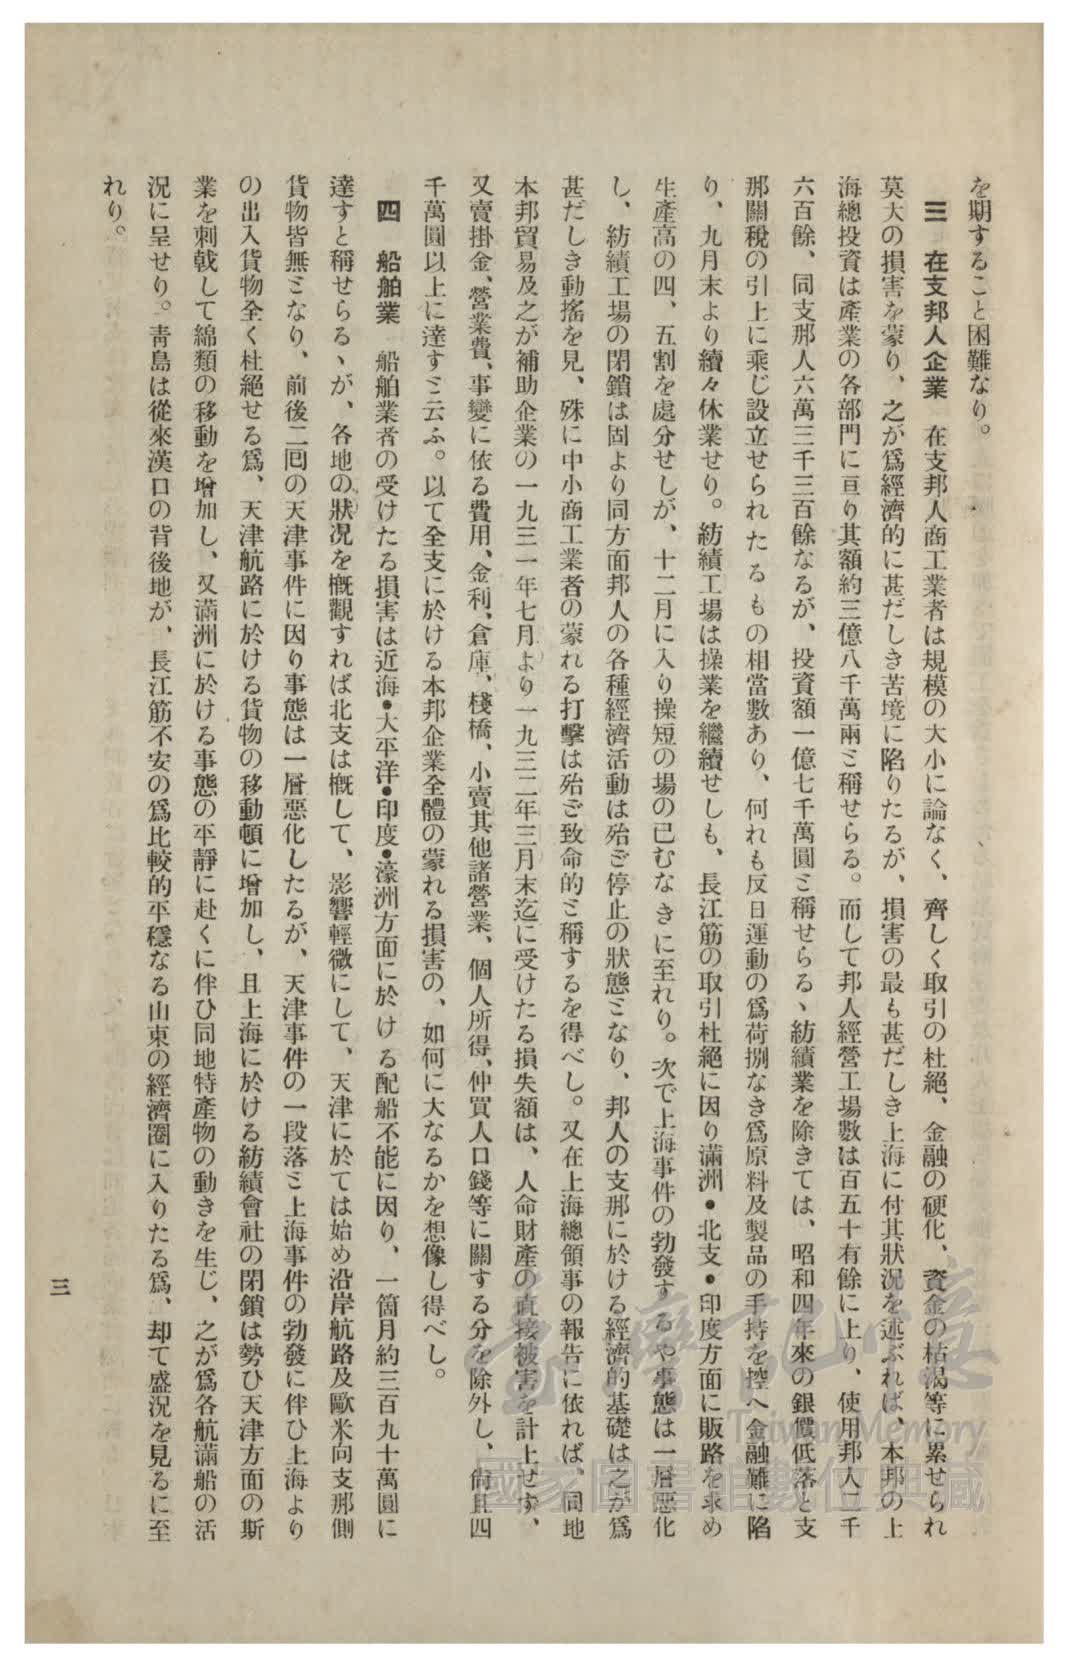 を期すること困難なり。
三 在支邦人企業 在支邦人商工業者は規模の大小に論なく、齊しく取引の杜絕、金融の硬化、資金の枯渴等に累せられ
莫大の損害を蒙り、之が爲經濟的に甚だしき苦境に陷りたるが、損害の最も甚だしき上海に付其狀況を述ぶれば、本邦の上
海總投資は產業の各部門に亘り其額約三億八千萬兩ミ稱せらる。而して邦人經營工場數は百五十有餘に上り、使用邦人二千
六百餘、同支那人六萬三千三百餘なるが、投資額一億七千萬圓ミ稱せらるゝ紡績業を除きては、昭和四年來の銀價低落と支
那關稅の引上に乘じ設立せられたるもの相當數あり、何れも反日運動の爲荷捌なき爲原料及製品の手持を控へ金融難に陷
り、九月末より續々休業せり。紡績工場は操業を繼續せしも、長江筋の取引杜絕に因り滿洲・北支・印度方面に販路を求め
生產高の四、五割を處分せしが、十二月に入り操短の場の已むなきに至れり。次で上海事件の勃發するや事態は一層惡化
し、紡績工場の閉鎖は固より同方面邦人の各種經濟活動は殆ご停止の狀態ミなり、邦人の支那に於ける經濟的基礎は之が爲
甚だしき動搖を見、殊に中小商工業者の蒙れる打擊は殆ご致命的ミ稱するを得べし。又在上海總領事の報告に依れば、同地
本邦貿易及之が補助企業の一九三一年七月より一九三二年三月末迄に受けたる損失額は、人命財產の直接被害を計上せず、
又賣掛金、營業費、事變に依る費用、金利、倉庫、棧橋、小賣其他諸營業、個人所得、仲買人口錢等に關する分を除外し、尙且四
千萬圓以上に達すミ云ふ。以て全支に於ける本邦企業全體の蒙れる損害の、如何に大なるかを想像し得べし。
四 船舶業 船舶業者の受けたる損害は近海・大平洋・印度・濠洲方面に於ける配船不能に因り、一箇月約三百九十萬圓に
達すと稱せらるゝが、各地の狀況を槪觀すれば北支は槪して、影響輕微にして、天津に於ては始め沿岸航路及歐米向支那側
貨物皆無ミなり、前後二囘の天津事件に因り事態は一層惡化したるが、天津事件の一段落ミ上海事件の勃發に伴ひ上海より
の出入貨物全く杜絕せる爲、天津航路に於ける貨物の移動頓に增加し、且上海に於ける紡績會社の閉鎖は勢ひ天津方面の斯
業を刺戟して綿類の移動を增加し、又滿洲に於ける事態の平靜に赴くに伴ひ同地特產物の動きを生じ、之が爲各航滿船の活
況に呈せり。靑島は從來漢口の背後地が、長江筋不安の爲比較的平穩なる山東の經濟圈に入りたる爲、却て盛況を見るに至
れり。
三
臺灣記憶
Taiwan Memory
國家圖書館數位典藏